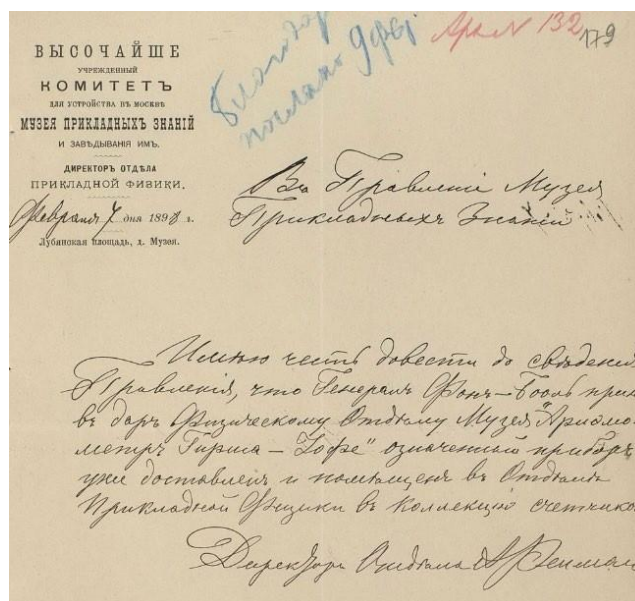 ВЫСОЧАЙШЕ
УЧРЕЖДЕННЫЙ
КОМИТЕТЪ
ДЛЯ УСТРОЙСТВА ВЪ МОСКВѢ
МУЗЕЯ ПРИКЛАДНЫХЪ ЗНАНІЙ
И ЗАВѢДЫВАНІЯ ИМЪ.
ДИРЕКТОРЪ ОТДѢЛА
ПРИКЛАДНОЙ ФИЗИКИ.
Февраля 7 дня 1898 г.
Лубянская площадь, д. Музея.
132
179
Въ Правленіе Музея
Прикладныхъ Знаній
Имѣю честь довести до свѣденія
Правленія, что Генералъ Фонъ-Бооль
въ даръ Физическому Отдѣлу Музея "Ариѳмо
метръ Гирша - Зофе" означенный приборъ
уже доставленъ и помѣщенъ въ Отдѣлѣ
Прикладной Физики въ Коллекцію счетчиков
Директоръ Отдѣла